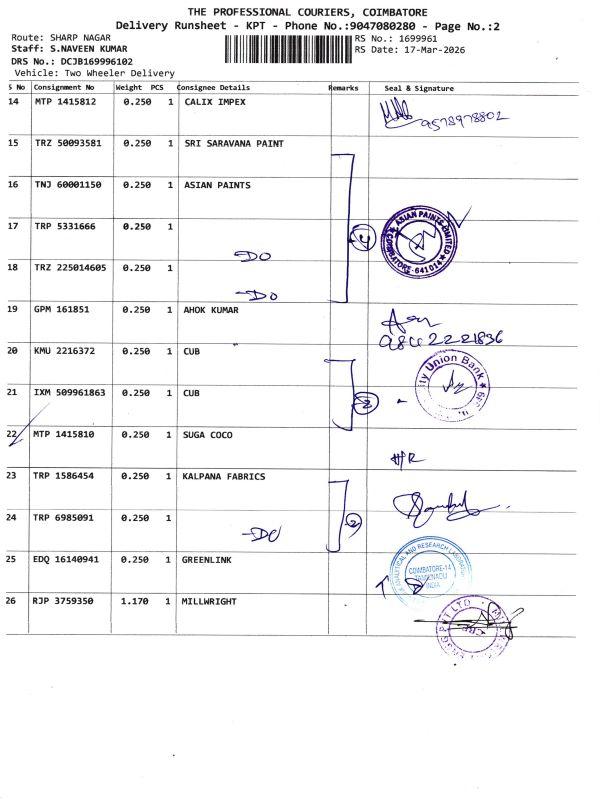 THE PROFESSIONAL COURIERS, COIMBATORE
Delivery Runsheet - KPT - Phone No.:9047080280 - Page No.:2
Route: SHARP NAGAR
RS No.: 1699961
Staff: S.NAVEEN KUMAR
RS Date: 17-Mar-2026
DRS No.: DCJB169996102
Vehicle: Two Wheeler Delivery
S No Consignment No Weight PCS Consignee Details Remarks Seal & Signature
14 MTP 1415812 0.250 1 CALIX IMPEX
9578978802
15 TRZ 50093581 0.250 1 SRI SARAVANA PAINT
16 TNJ 60001150 0.250 1 ASIAN PAINTS
17 TRP 5331666 0.250 1
DO
ASIAN PAINTS LIMITED
COIMBATORE-641014
18 TRZ 225014605 0.250 1
DO
19 GPM 161851 0.250 1 AHOK KUMAR
20 KMU 2216372 0.250 1 CUB
Union Bank
21 IXM 509961863 0.250 1 CUB
2
22 MTP 1415810 0.250 1 SUGA COCO
H/R
23 TRP 1586454 0.250 1 KALPANA FABRICS
24 TRP 6985091 0.250 1
DO
2
25 EDQ 16140941 0.250 1 GREENLINK
ANALYTICAL AND RESEARCH
COIMBATORE-14
TAMILNADU
INDIA
26 RJP 3759350 1.170 1 MILLWRIGHT
PVT LTD
CBE